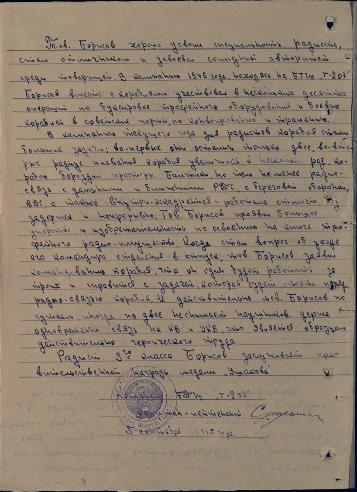 Тов. Борисов хорошо усвоил специальность радиста,
стал отличником и завоевал солидный авторитет
среди товарищей. В кампанию 1945 года, находясь на БТЩ "Т-207"
Борисов вместе с кораблями участвовал в нескольких десятках
операций по буксировке трофейного оборудования и боевых
кораблей в советские порты, по конвоированию и тралению.
В кампанию текущего года для радистов корабля стали
большие задачи; во-первых они остались только двое, во-вто-
рых радиус плавания корабля увеличился в несколько раз, ко-
рабль бороздит просторы Балтики но тем не менее радио-
связь с дальними и ближними РВС, с береговой обороны,
ВВС, а также внутри-эскадренная - работала отлично без
задержек и непрерывно. Тов. Борисов проявил большое
упорство и изобретательность по освоению на
трофейного радио-имущества. Когда стал вопрос об уходе
его командира отделения в отпуск, тов. Борисов заявил
командованию корабля, что он один будет работать за
троих и справится с задачей которая будет стоять перед
радио-связью корабля. И действительно тов. Борисов по
суткам, иногда по двое не снимает наушников держа
одновременно связь на КВ и УКВ, что является образцом
действительно героического труда.
Радист 3го класса Борисов заслуживает пра-
вительственной награды медали "Ушакова".
Командир БТЩ "Т-207"
капитан-лейтенант
5 сентября года.